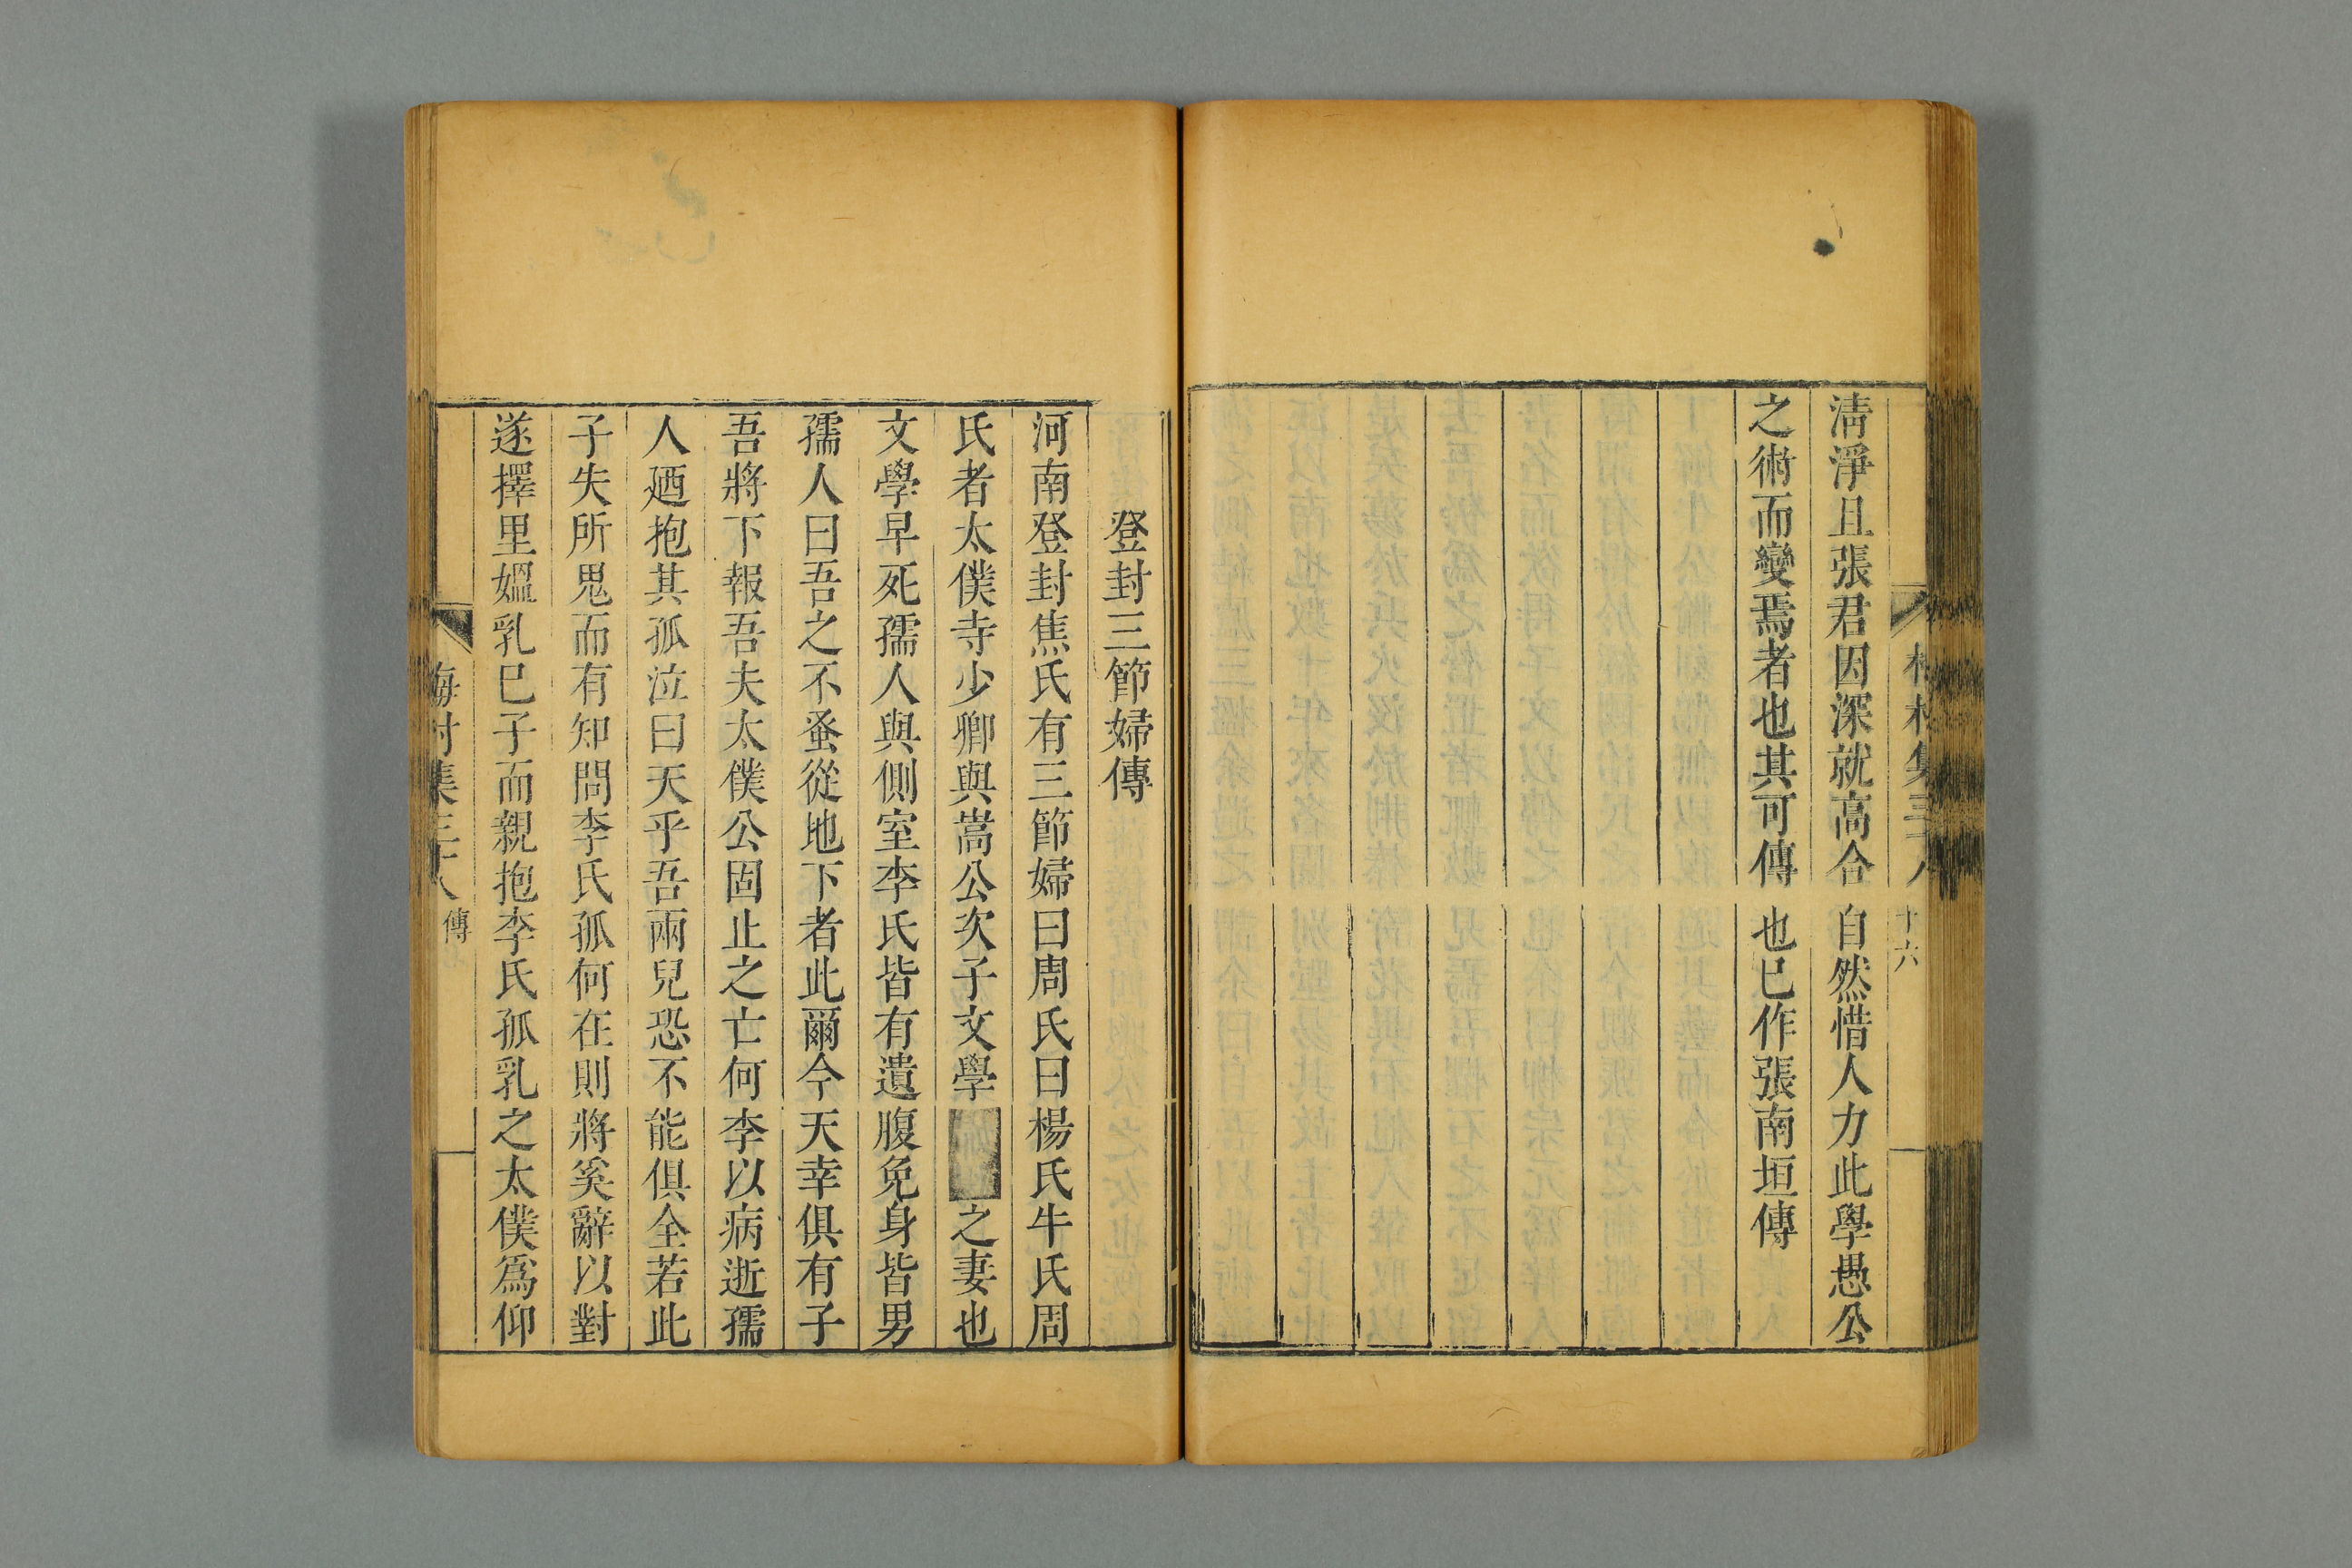 清淨且張君因深就高合自然惜人力此學愚公
之術而變焉者也其可傳也已作張南垣傳
十六
登封三節婦傳
河南登封焦氏有三節婦曰周氏曰楊氏牛氏周
氏者太僕寺少卿與嵩公次子文學之妻也
文學早死孺人與側室李氏皆有遺腹免身皆男
孺人曰吾之不蚤從地下者此爾今天幸俱有子
吾將下報吾夫太僕公固止之亡何李以病逝孺
人廼抱其孤泣曰天乎吾兩兒恐不能俱全若此
子失所鬼而有知問李氏孤何在則將奚辭以對
遂擇里媼乳巳子而親抱李氏孤乳之太僕爲仰
梅村集三十八
傳